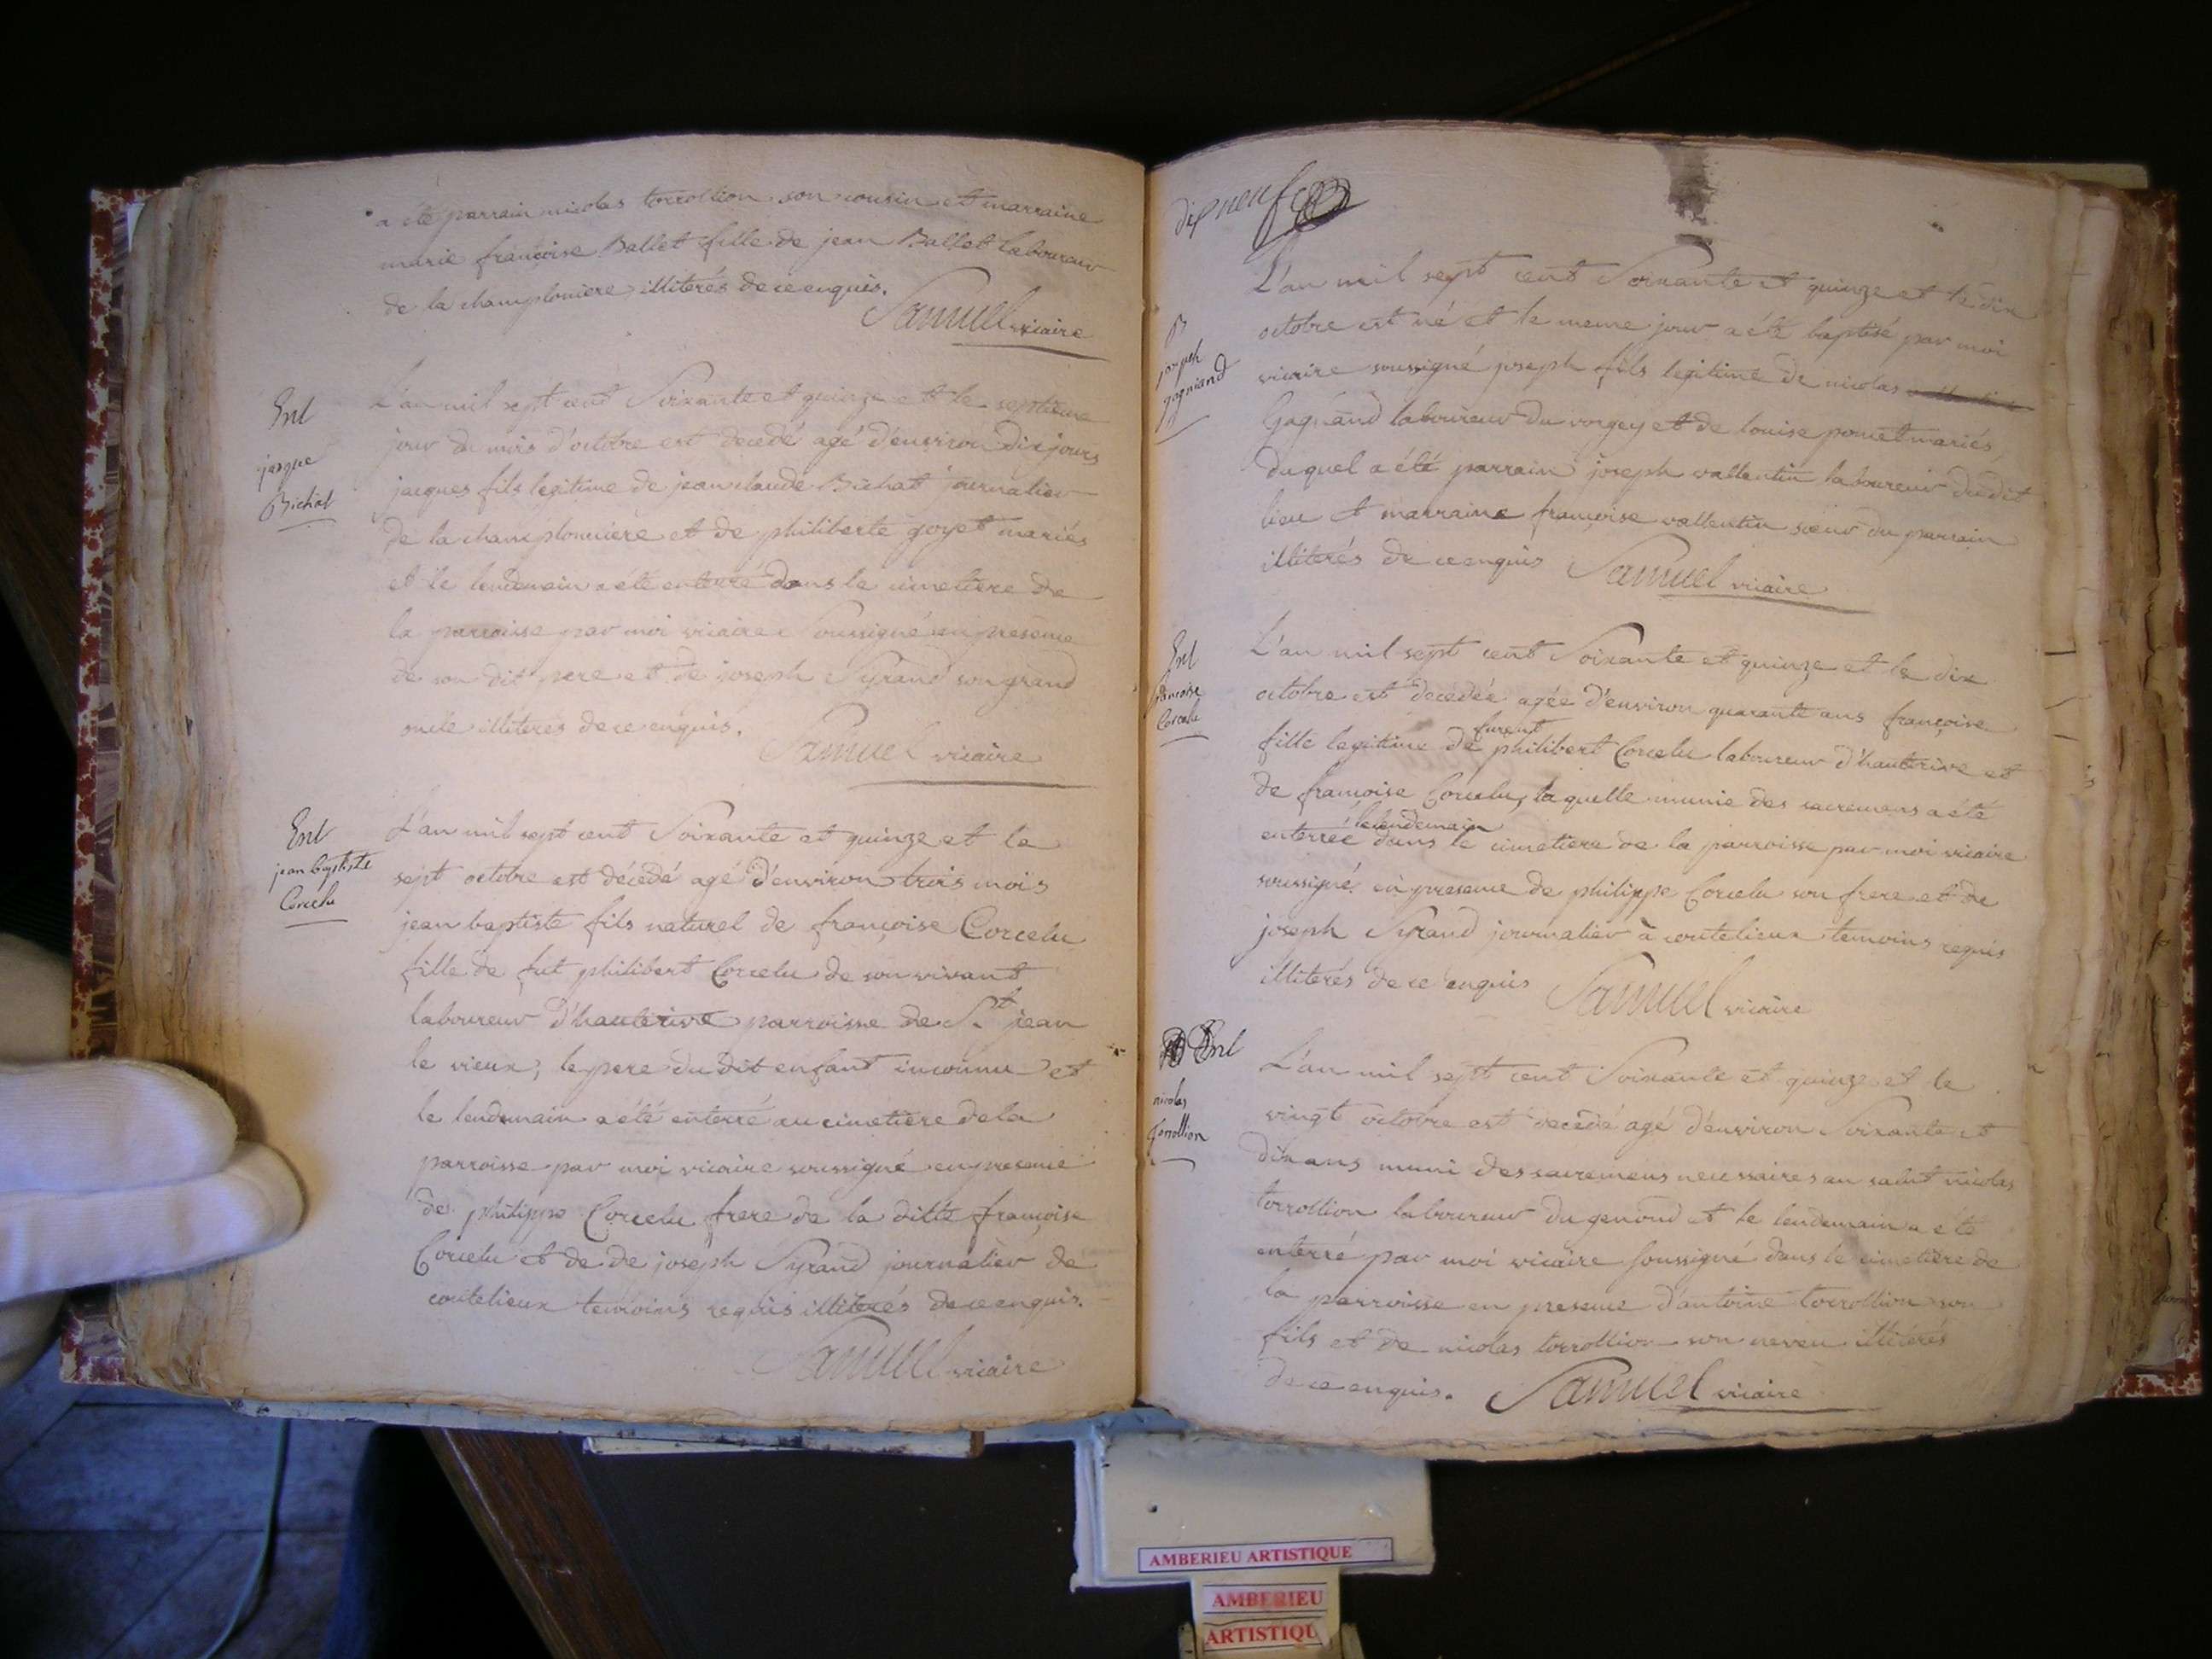 a été parrain nicolas torrollion son cousin et marraine
marie françoise Ballet fille de jean Ballet laboureur
de la champloniere illiterés de ce enquis.
Samuel vicaire
Ent
jacque
Bichat
L'an mil sept cent Soixante et quinze et le septieme
jour du mois d'octobre est decedé agé d'environ dix jours
jacques fils legitime de jean claude Bichat journalier
de la champlonniere et de philiberte goyet mariés
et le lendemain a été enterré dans le cimetiere de
la parroisse par moi vicaire Soussigné en presence
de son dit pere et de joseph Syrand son grand
oncle illiterés de ce enquis.
Samuel vicaire
Ent
jean baptiste
Corcelu
L'an mil sept cent Soixante et quinze et le
sept octobre est décédé agé d'environ trois mois
jean baptiste fils naturel de françoise Corcelu
fille de fut philibert Corcelu de son vivant
laboureur d'hauterive parroisse de St jean
le vieux, le pere du dit enfant inconnu et
le lendemain a été enterré au cimetiere de la
parroisse par moi vicaire soussigné en presence
de philippe Corcelu frere de la ditte françoise
Corcelu et de de joseph Syrand journalier de
coutelieux temoins requis illiterés de ce enquis.
Samuel vicaire
dix neuf
B
joseph
gagniand
L'an mil sept cent Soixante et quinze et le dix
octobre est né et le meme jour a été baptisé par moi
vicaire soussigné joseph fils legitime de nicolas
Gagnand laboureur du vorgey et de louise poncet mariés,
duquel a été parrain joseph vallentin laboureur dudit
lieu et marraine françoise vallentin soeur du parrain
illiterés de ce enquis Samuel vicaire
Ent
françoise
Corcelu
L'an mil sept cent Soixante et quinze et le dix
octobre est decedée agée d'environ quarante ans françoise
fille legitime de furent philibert Corcelu laboureur d'hauterive et
de françoise Corcelu, laquelle munie des sacremens a été
enterrée le lendemain dans le cimetiere de la parroisse par moi vicaire
soussigné en presence de philippe Corcelu son frere et de
joseph Syrand journalier à coutelieux temoins requis
illiterés de ce enquis Samuel vicaire
Ent
nicolas
Torrollion
L'an mil sept cent Soixante et quinze et le
vingt octobre est decedé agé d'environ Soixante et
dix ans muni des sacremens necessaires au salut nicolas
torrollion laboureur du genoud et le lendemain a été
enterré par moi vicaire soussigné dans le cimetiere de
la parroisse en presence d'antoine torrollion son
fils et de nicolas torrollion son neveu illiterés
de ce enquis. Samuel vicaire
AMBERIEU ARTISTIQUE
AMBERIEU
ARTISTIQU